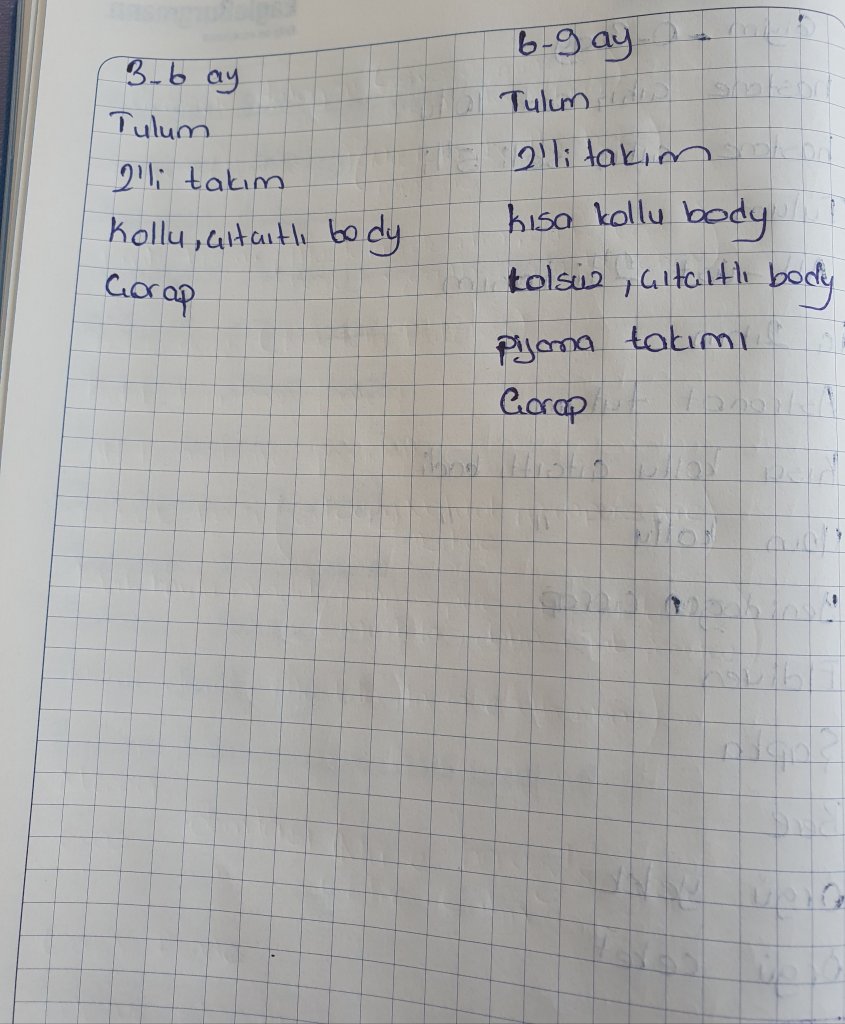 3-6 ay
Tulum
2'li takım
Kollu, çıtçıtlı body
Çorap
6-9 ay -
Tulum
2'li takım
kısa kollu body
kolsuz, çıtçıtlı body
pijama takımı
Çorap